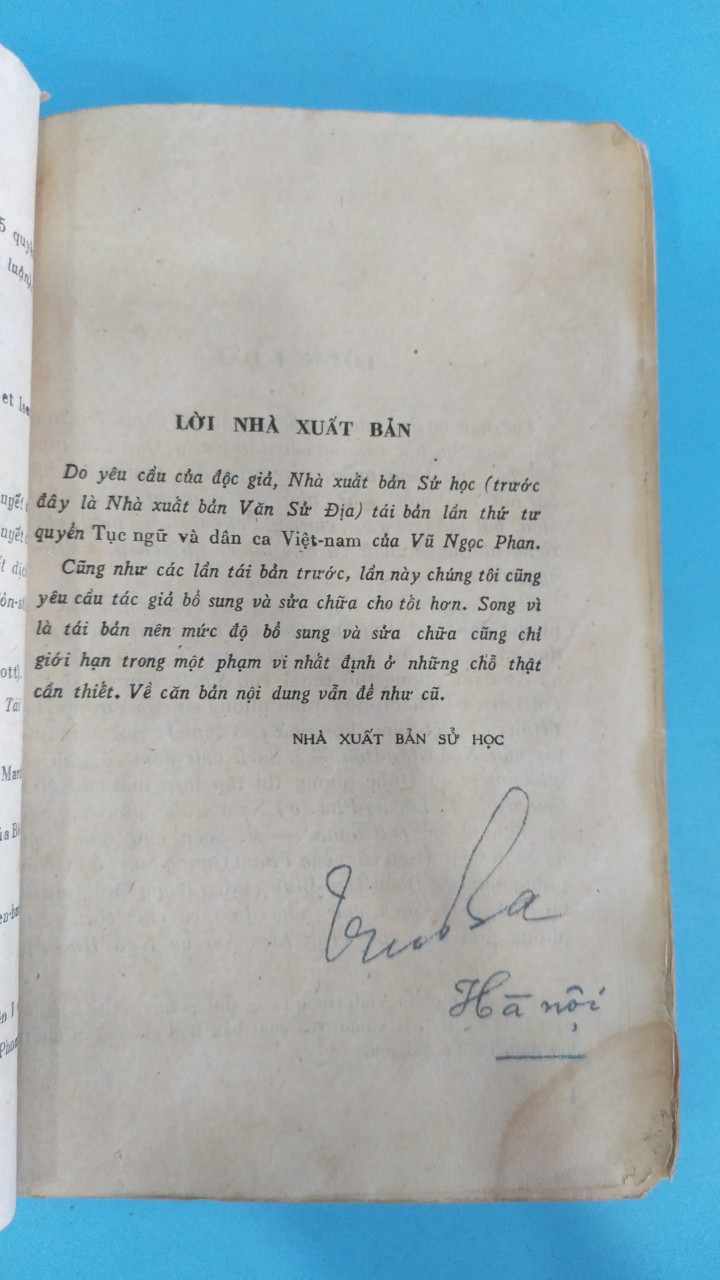 5 quyể
luận)
et
LỜI NHÀ XUẤT BẢN
Do yêu cầu của độc giả, Nhà xuất bản Sử học (trước
đây là Nhà xuất bản Văn Sử Địa) tái bản lần thứ tư
quyển Tục ngữ và dân ca Việt-nam của Vũ Ngọc Phan.
Cũng như các lần tái bản trước, lần này chúng tôi cũng
yêu cầu tác giả bổ sung và sửa chữa cho tốt hơn. Song vì
là tái bản nên mức độ bổ sung và sửa chữa cũng chỉ
giới hạn trong một phạm vi nhất định ở những chỗ thật
cần thiết. Về căn bản nội dung vẫn để như cũ.
NHÀ XUẤT BẢN SỬ HỌC
ott).
Tài
Mar
Ba
Hà nội